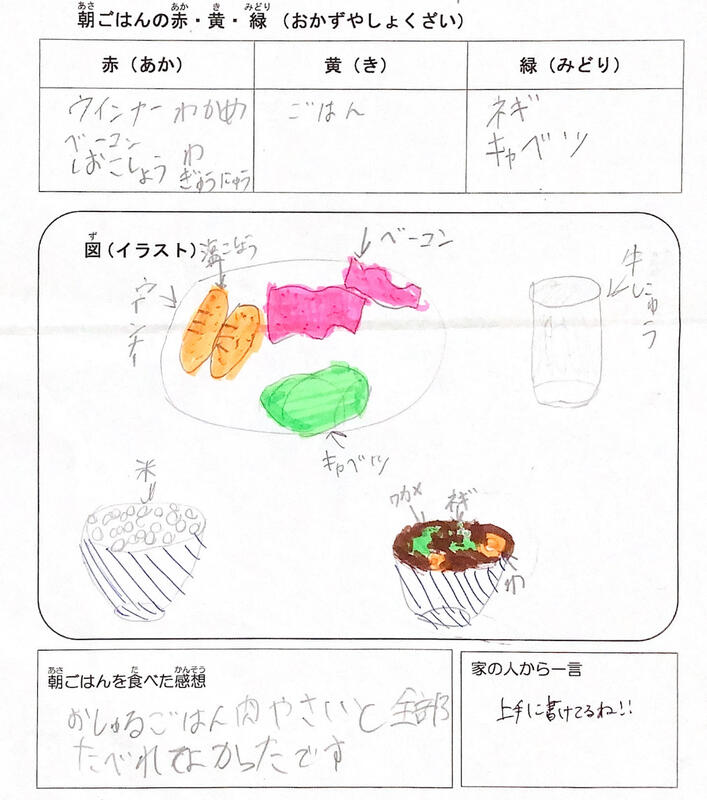 朝ごはんの赤・黄・緑（おかずやしょくざい）
赤（あか）
黄（き）
緑（みどり）
ウインナー わかめ
ベーコン
しおこしょう わ
ぎゅうにゅう
ごはん
ネギ
キャベツ
図（イラスト）
塩こしょう
ベーコン
ウインナー
牛にゅう
キャベツ
米
ワカメ
ネギ
わ
朝ごはんを食べた感想
おしるごはん肉やさいと全部
たべれてよかったです
家の人から一言
上手に書けてるね!!